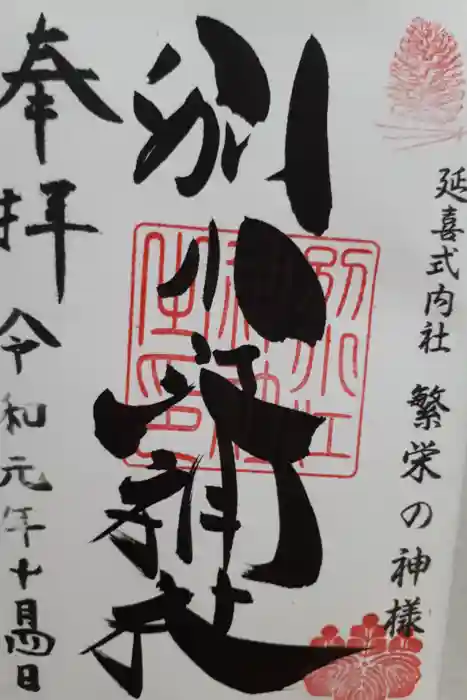 延喜式内社 繁栄の神様
別小江神社
別小江
神社
之印
奉拝 令和元年十日